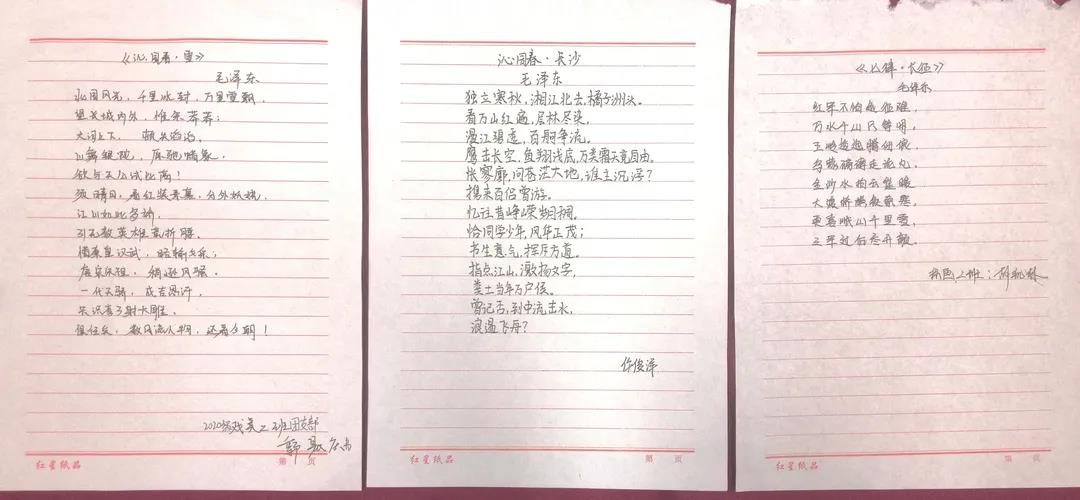 《沁园春·雪》
毛泽东
北国风光，千里冰封，万里雪飘，
望长城内外，惟余莽莽；
大河上下，顿失滔滔，
山舞银蛇，原驰蜡象，
欲与天公试比高！
须晴日，看红装素裹，分外妖娆，
江山如此多娇，
引无数英雄竞折腰，
惜秦皇汉武，略输文采；
唐宗宋祖，稍逊风骚，
一代天骄，成吉思汗，
只识弯弓射大雕，
俱往矣，数风流人物，还看今朝！
2020级
班团支部
红星纸品
第 页
沁园春·长沙
毛泽东
独立寒秋，湘江北去，橘子洲头。
看万山红遍，层林尽染，
漫江碧透，百舸争流。
鹰击长空，鱼翔浅底，万类霜天竞自由。
怅寥廓，问苍茫大地，谁主沉浮？
携来百侣曾游。
忆往昔峥嵘岁月稠。
恰同学少年，风华正茂；
书生意气，挥斥方遒。
指点江山，激扬文字，
粪土当年万户侯。
曾记否，到中流击水，
浪遏飞舟？
许俊泽
红星纸品
第 页
《七律·长征》
毛泽东
红军不怕远征难，
万水千山只等闲，
五岭逶迤腾细浪，
乌蒙磅礴走泥丸，
金沙水拍云崖暖，
大渡桥横铁索寒，
更喜岷山千里雪，
三军过后尽开颜。
红星纸品
第 页